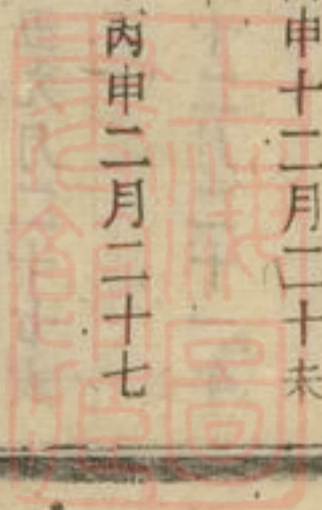 申十二月二十未
丙申二月二十七
上海圖